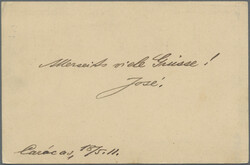 Allerseits viele Grüsse!
José.
Carácas, 18/5.11.